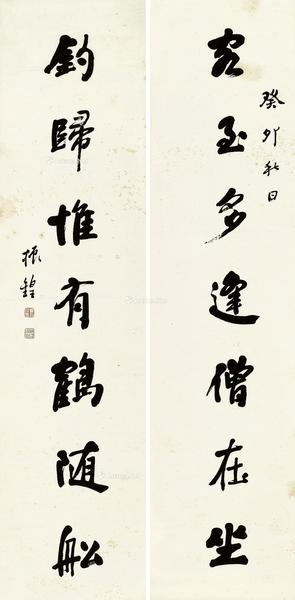 客至多逢僧在坐
癸卯秋日
釣歸惟有鶴隨船
振鍠